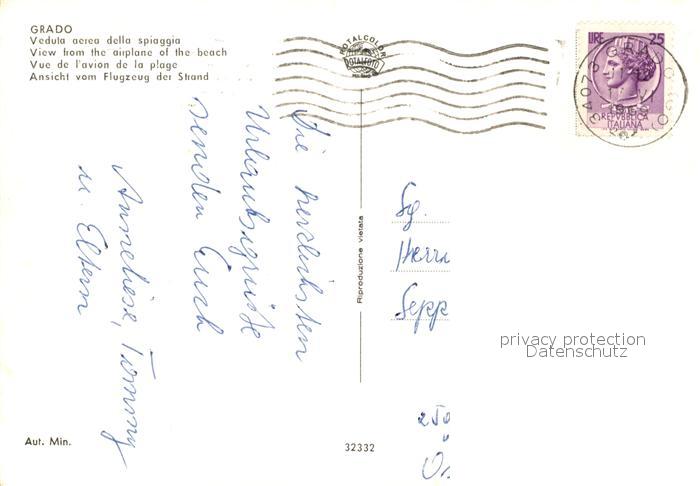 GRADO
Veduta aerea della spiaggia
View from the airplane of the beach
Vue de l'avion de la plage
Ansicht vom Flugzeug der Strand
ROTALCOLOR
ROTALFOTO
MILANO
LIRE 25
REPVBBLICA
ITALIANA
34073 GRADO (GO)
Die herzlichsten
Urlaubsgrüße
senden Euch
Anneliese, Tommy
u. Eltern
Riproduzione vietata
Sg.
Herrn
Sepp
privacy protection
Datenschutz
Aut. Min.
32332